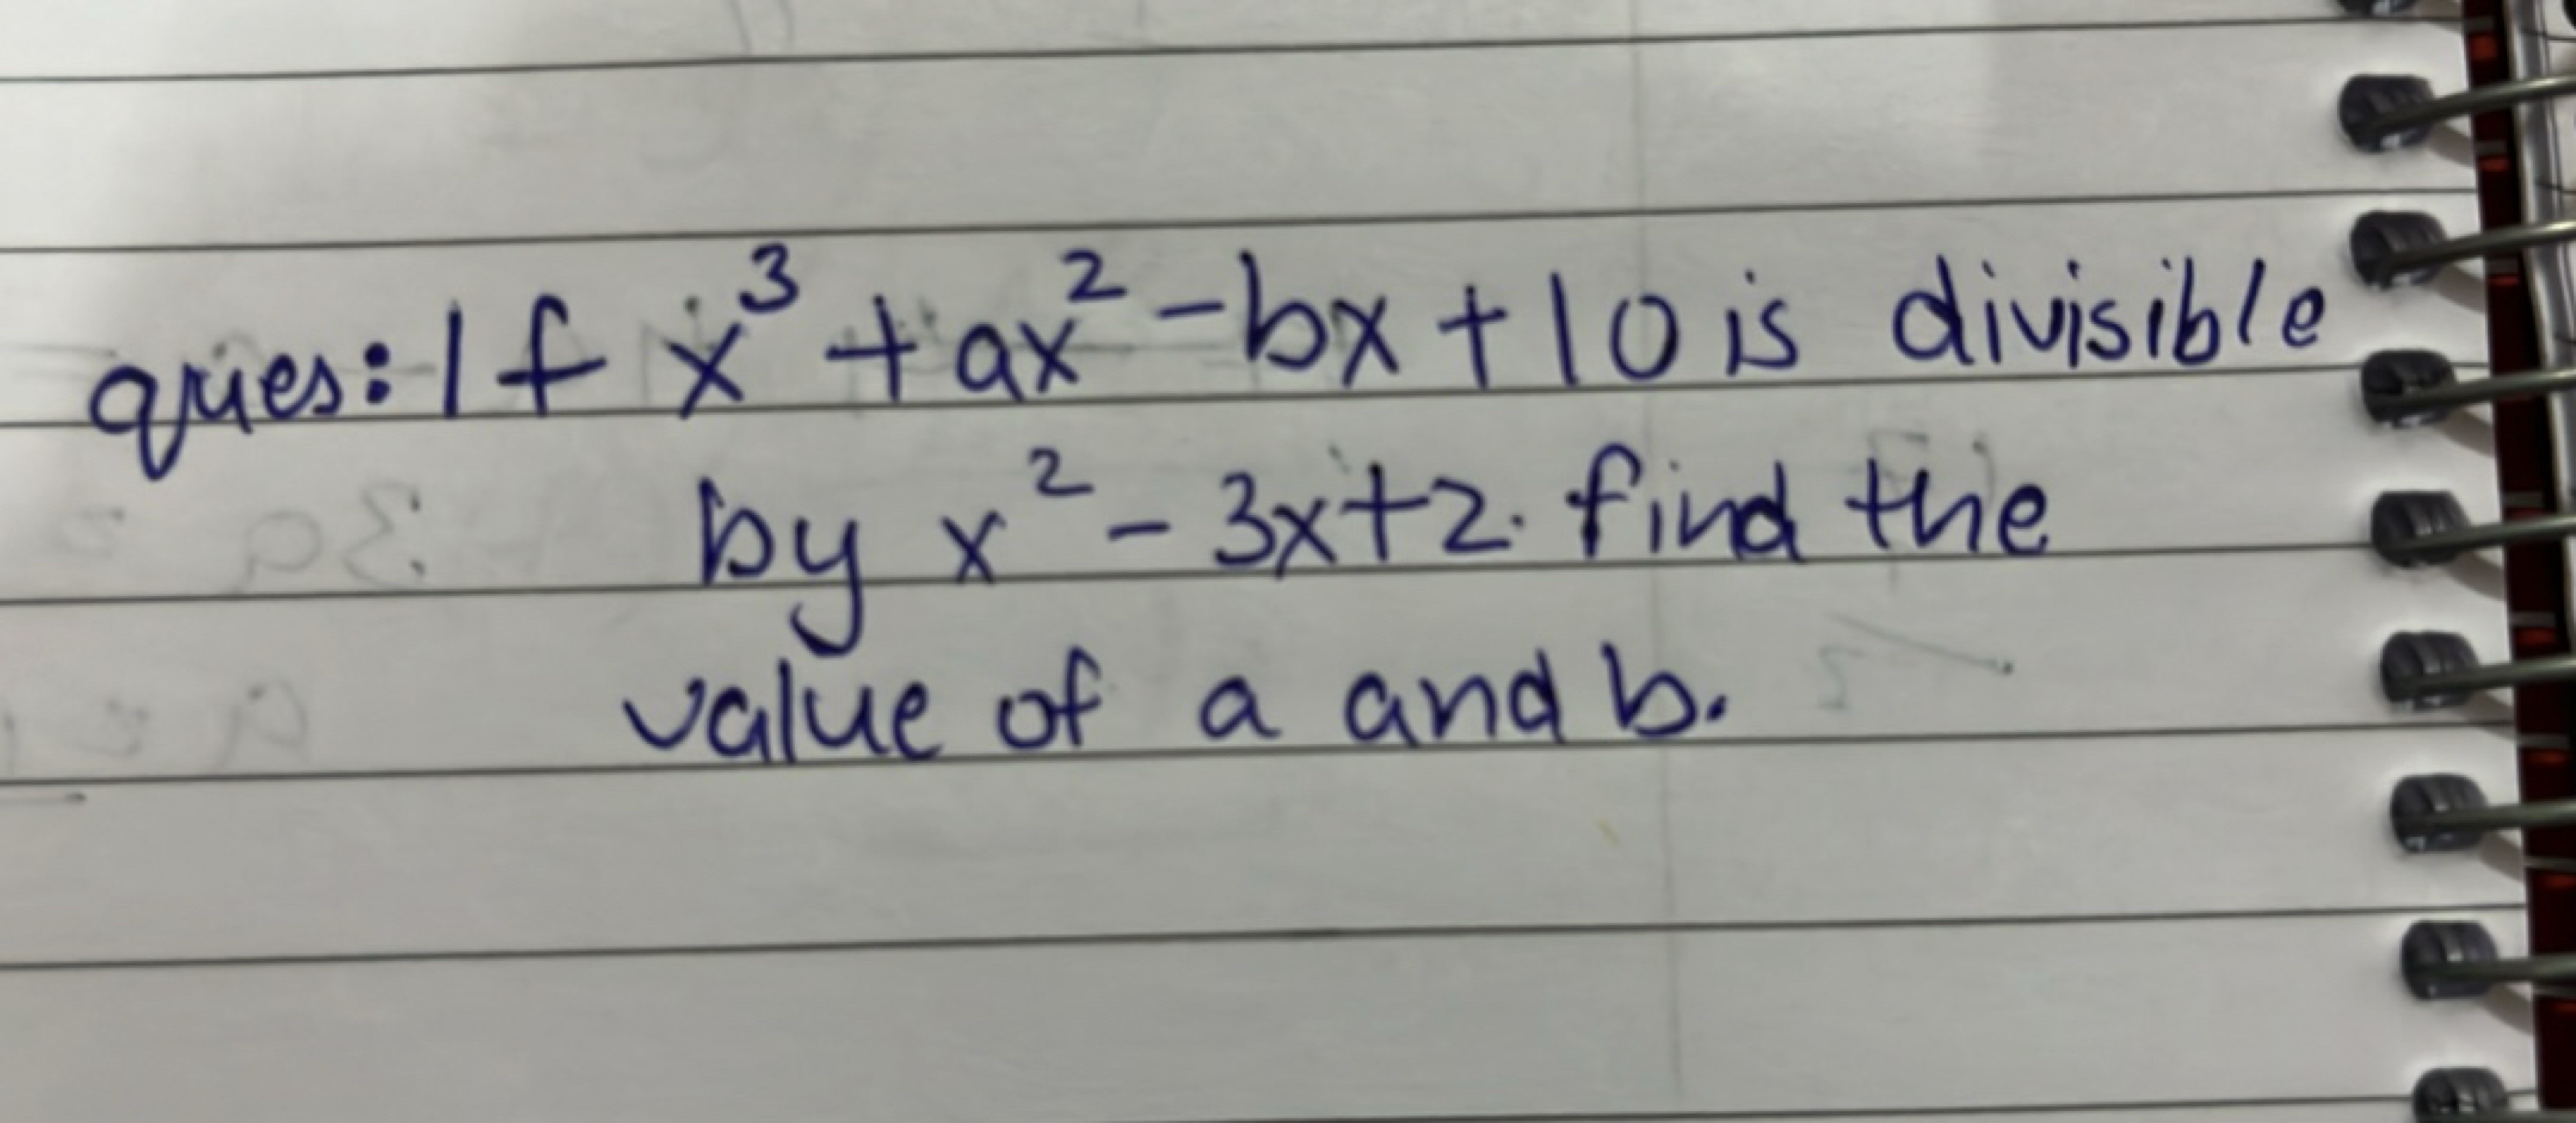 ques: If x³ + ax² - bx + 10 is divisible
by x² - 3x + 2. find the
value of a and b.